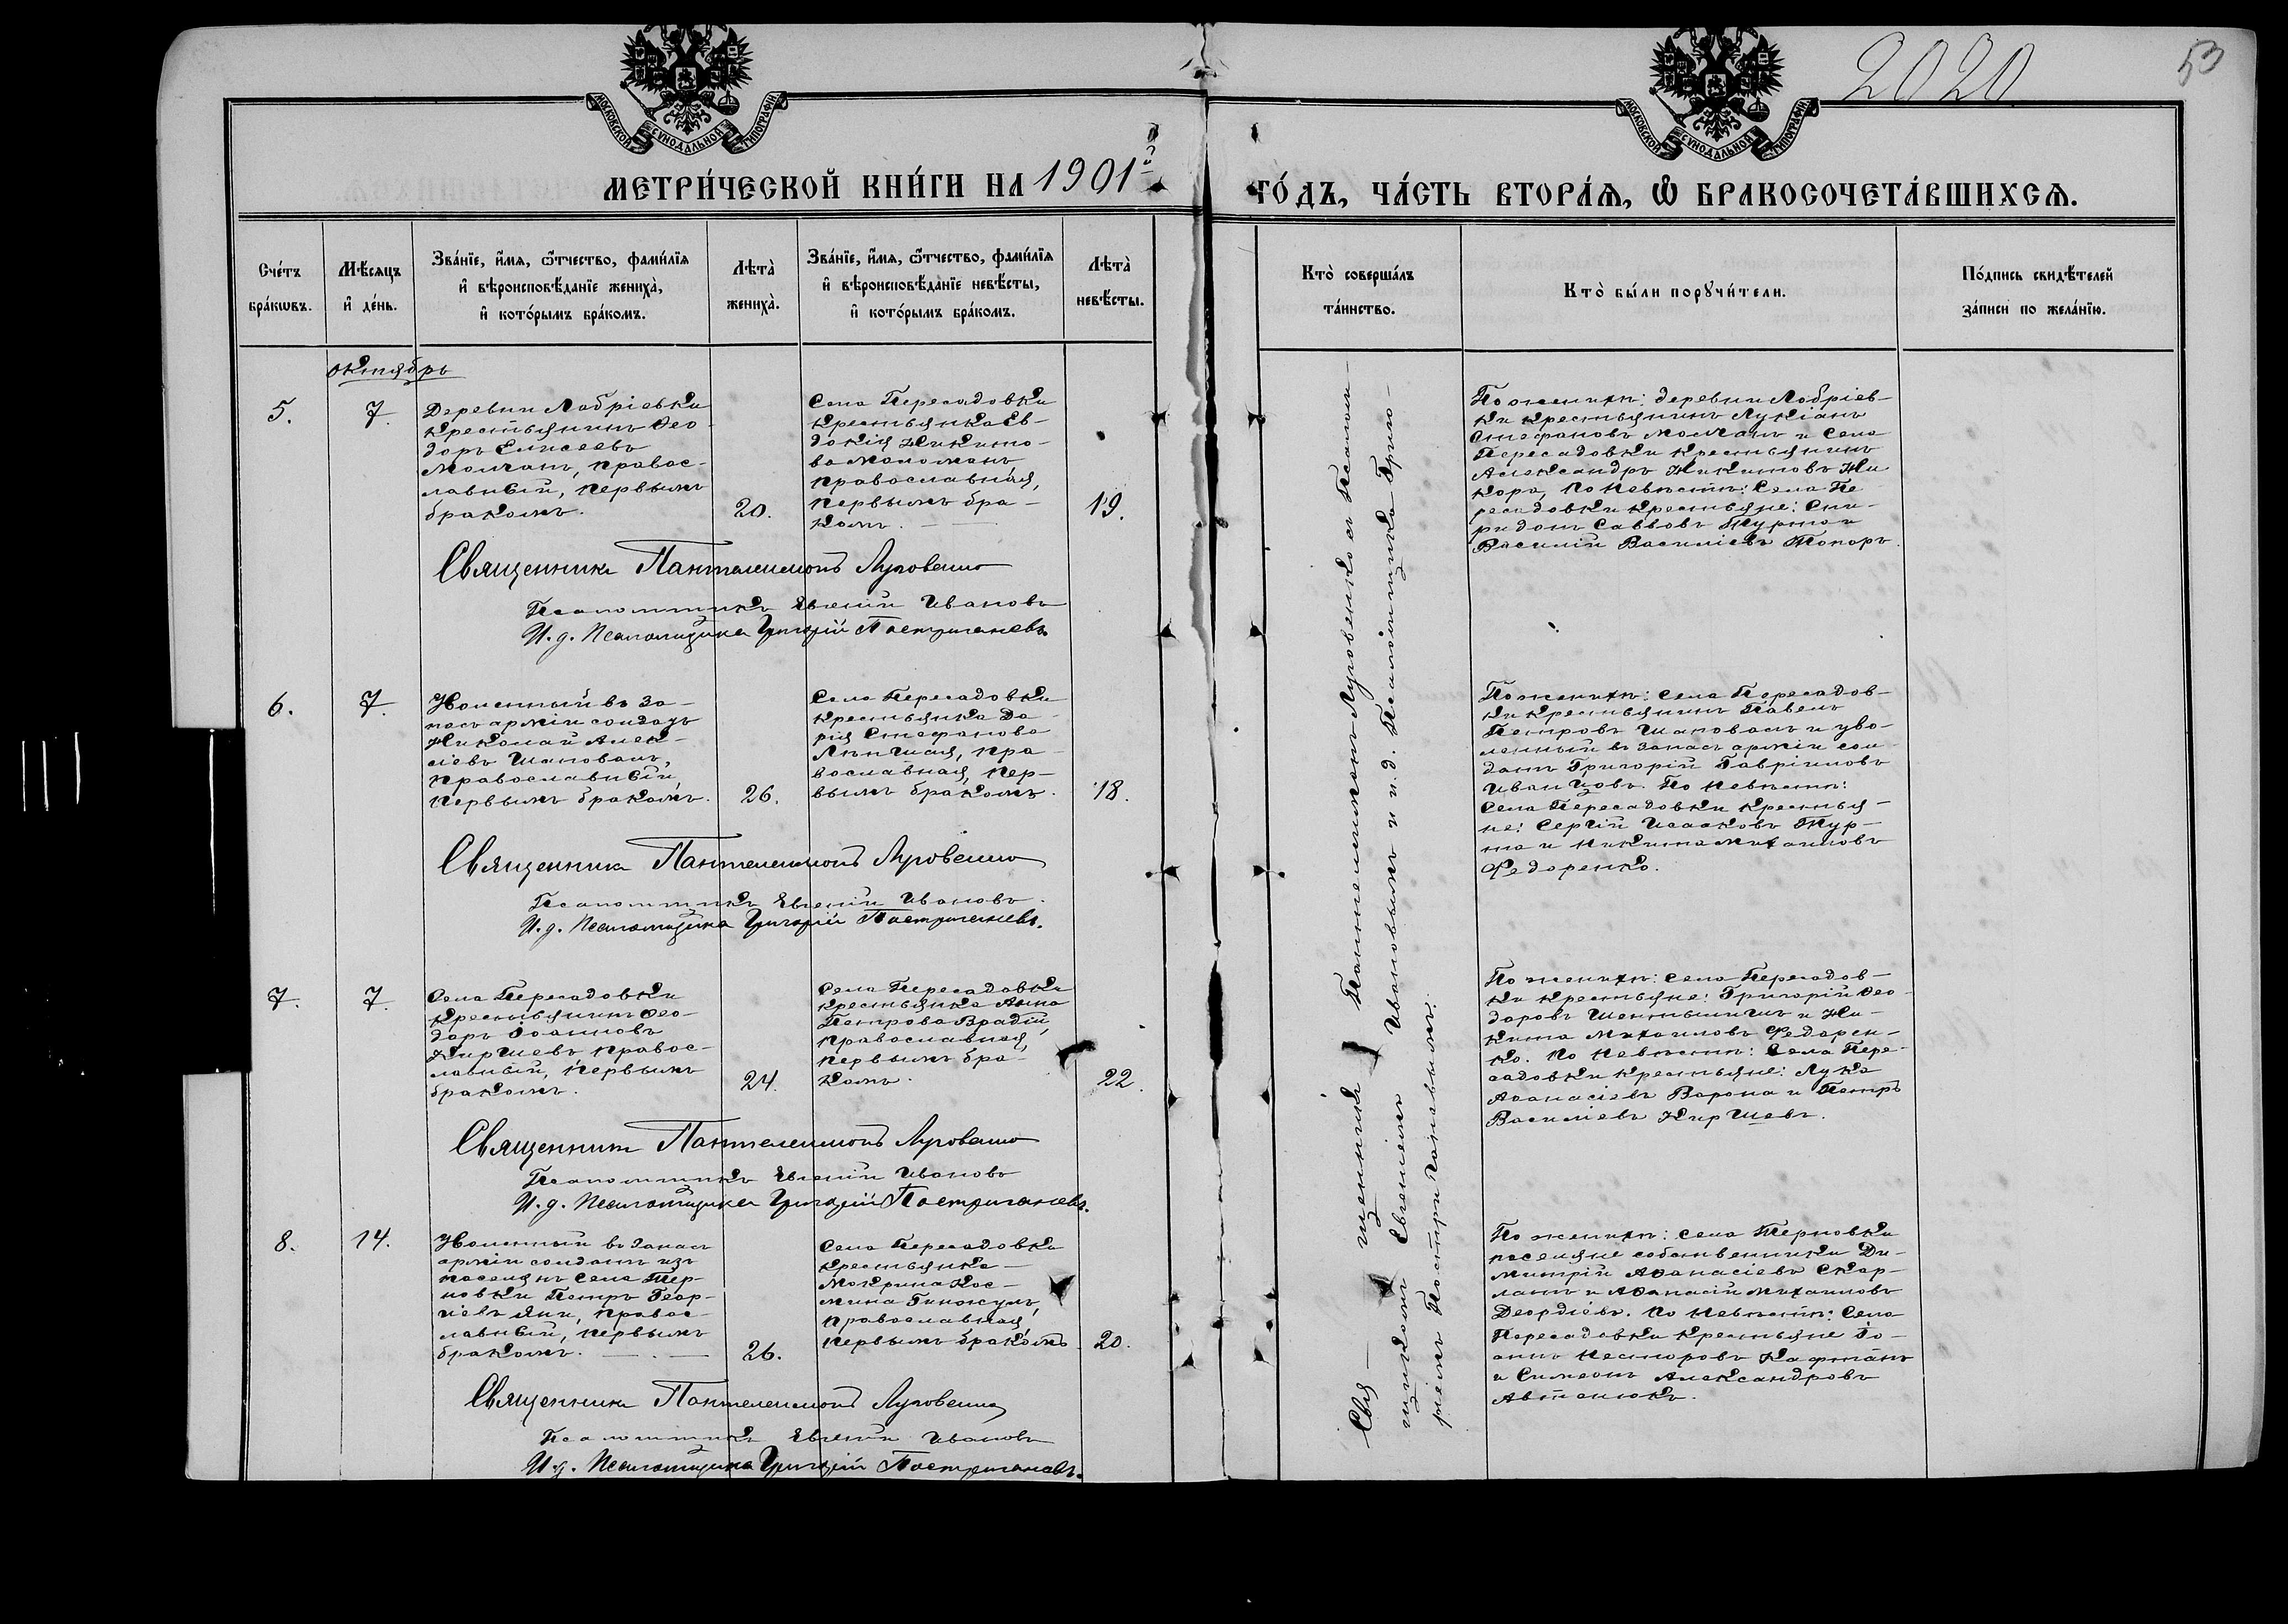 2020
53
МОСКОВСКОЙ СѴНОДАЛЬНОЙ ТИПОГРАФІИ
МОСКОВСКОЙ СѴНОДАЛЬНОЙ ТИПОГРАФІИ
МЕТРИ́ЧЕСКОЙ КНИ́ГИ НА 1901й
ГО́ДЪ, ЧА́СТЬ ВТОРА́Ѧ, Ѡ БРАКОСОЧЕТА́ВШИХСѦ.
Сче́тъ
бра́кѡвъ.
Мѣ́сяцъ
и де́нь.
Зва́нїе, и́мя, ѻ́тчество, фами́лїя
и вѣроисповѣ́данїе жениха̀,
и кото́рымъ бра́комъ.
Лѣта̀
жениха̀.
Зва́нїе, и́мя, ѻ́тчество, фами́лїя
и вѣроисповѣ́данїе невѣ́сты,
и кото́рымъ бра́комъ.
Лѣта̀
невѣ́сты.
Кто̀ соверша́лъ
та́инство.
Кто̀ бы́ли порꙋчи́тели.
По́дпись свидѣ́телей
за́писи по жела́нїю.
октябрь
5.
7.
Деревни Лабріевки
крестьянинъ Ѳео-
доръ Елисеевъ
Молчанъ, правос-
лавный, первымъ
бракомъ.
20.
Села Пересадовки
крестьянка Ев-
докія Никито-
ва
православная,
первымъ бра-
комъ.
19.
По женихѣ: деревни Лобріев-
ки крестьянинъ Лукіанъ
Стефановъ Молчанъ и села
Пересадовки крестьянинъ
Александръ Никитовъ Ни
кора, по невѣстѣ: Села Пе
ресадовки крестьяне: Спи-
ридонъ Саввовъ Журта и
Василій Василіевъ Токоръ.
Священникъ Пантелеимонъ Луговенко
Псаломщикъ Евгеній Ивановъ
И. д. Псаломщика Григорій Постригачевъ
6.
7.
Уволенный въ за-
пасъ арміи солдатъ
Николай Алек-
сіевъ Шаповалъ,
православный,
первымъ бракомъ.
26.
Села Пересадовки
крестьянка Да-
рія Стефанова
пра-
вославная, пер-
вымъ бракомъ.
18.
По женихѣ: села Пересадов-
ки крестьянинъ Павелъ
Петровъ Шаповалъ и уво-
ленный въ запасъ арміи сол
датъ Григорій Гавріиловъ
Иванцовъ. По невѣстѣ:
Села Пересадовки крестья-
не: Сергій Исааковъ Жур-
та и Никита Михаиловъ
Федоренко.
Священникъ Пантелеимонъ Луговенко
Псаломщикъ Евгеній Ивановъ.
И. д. Псаломщика Григорій Постригачевъ.
7.
7.
Села Пересадовки
крестьянинъ Ѳео-
доръ Іоанновъ
Киршевъ, правос-
лавный, первымъ
бракомъ.
24.
Села Пересадовки
крестьянка Анна
Петрова Врадій,
православная,
первымъ бра-
комъ.
22.
По женихѣ: села Пересадов-
ки крестьяне: Григорій Ѳео-
доровъ и Ни-
кита Михаиловъ Федорен-
ко. По невѣстѣ: Села Пере-
садовки крестьяне: Лука
Аѳанасіевъ Ворона и Петръ
Василіевъ Киршевъ.
Священникъ Пантелеимонъ Луговенко
Псаломщикъ Евгеній Ивановъ
И. д. Псаломщика Григорій Постригачевъ.
8.
14.
Уволенный въ запасъ
арміи солдатъ изъ
поселянъ села Тер-
новки Петръ Геор-
гіевъ Яни, правос-
лавный, первымъ
бракомъ.
26.
Села Пересадовки
крестьянка
Макрина Кос-
мина
православная,
первымъ бракомъ
20.
По женихѣ: села Терновки
поселяне собственники Ди-
митрій Аѳанасіевъ Скар-
латъ и Аѳанасій Михаиловъ
Деордіевъ. По невѣстѣ: Села
Пересадовки крестьяне Іо-
аннъ Несторовъ Кафтанъ
и Симеонъ Александровъ
Автонюкъ.
Священникъ Пантелеимонъ Луговенко
Псаломщикъ Евгеній Ивановъ
И. д. Псаломщика Григорій Постригачевъ.
Свя-щенникъ Пантелеимонъ Луговенко съ Псалом-
щикомъ Евгеніемъ Ивановымъ и и. д. Псаломщика Григо-
ріемъ Постригачевымъ.